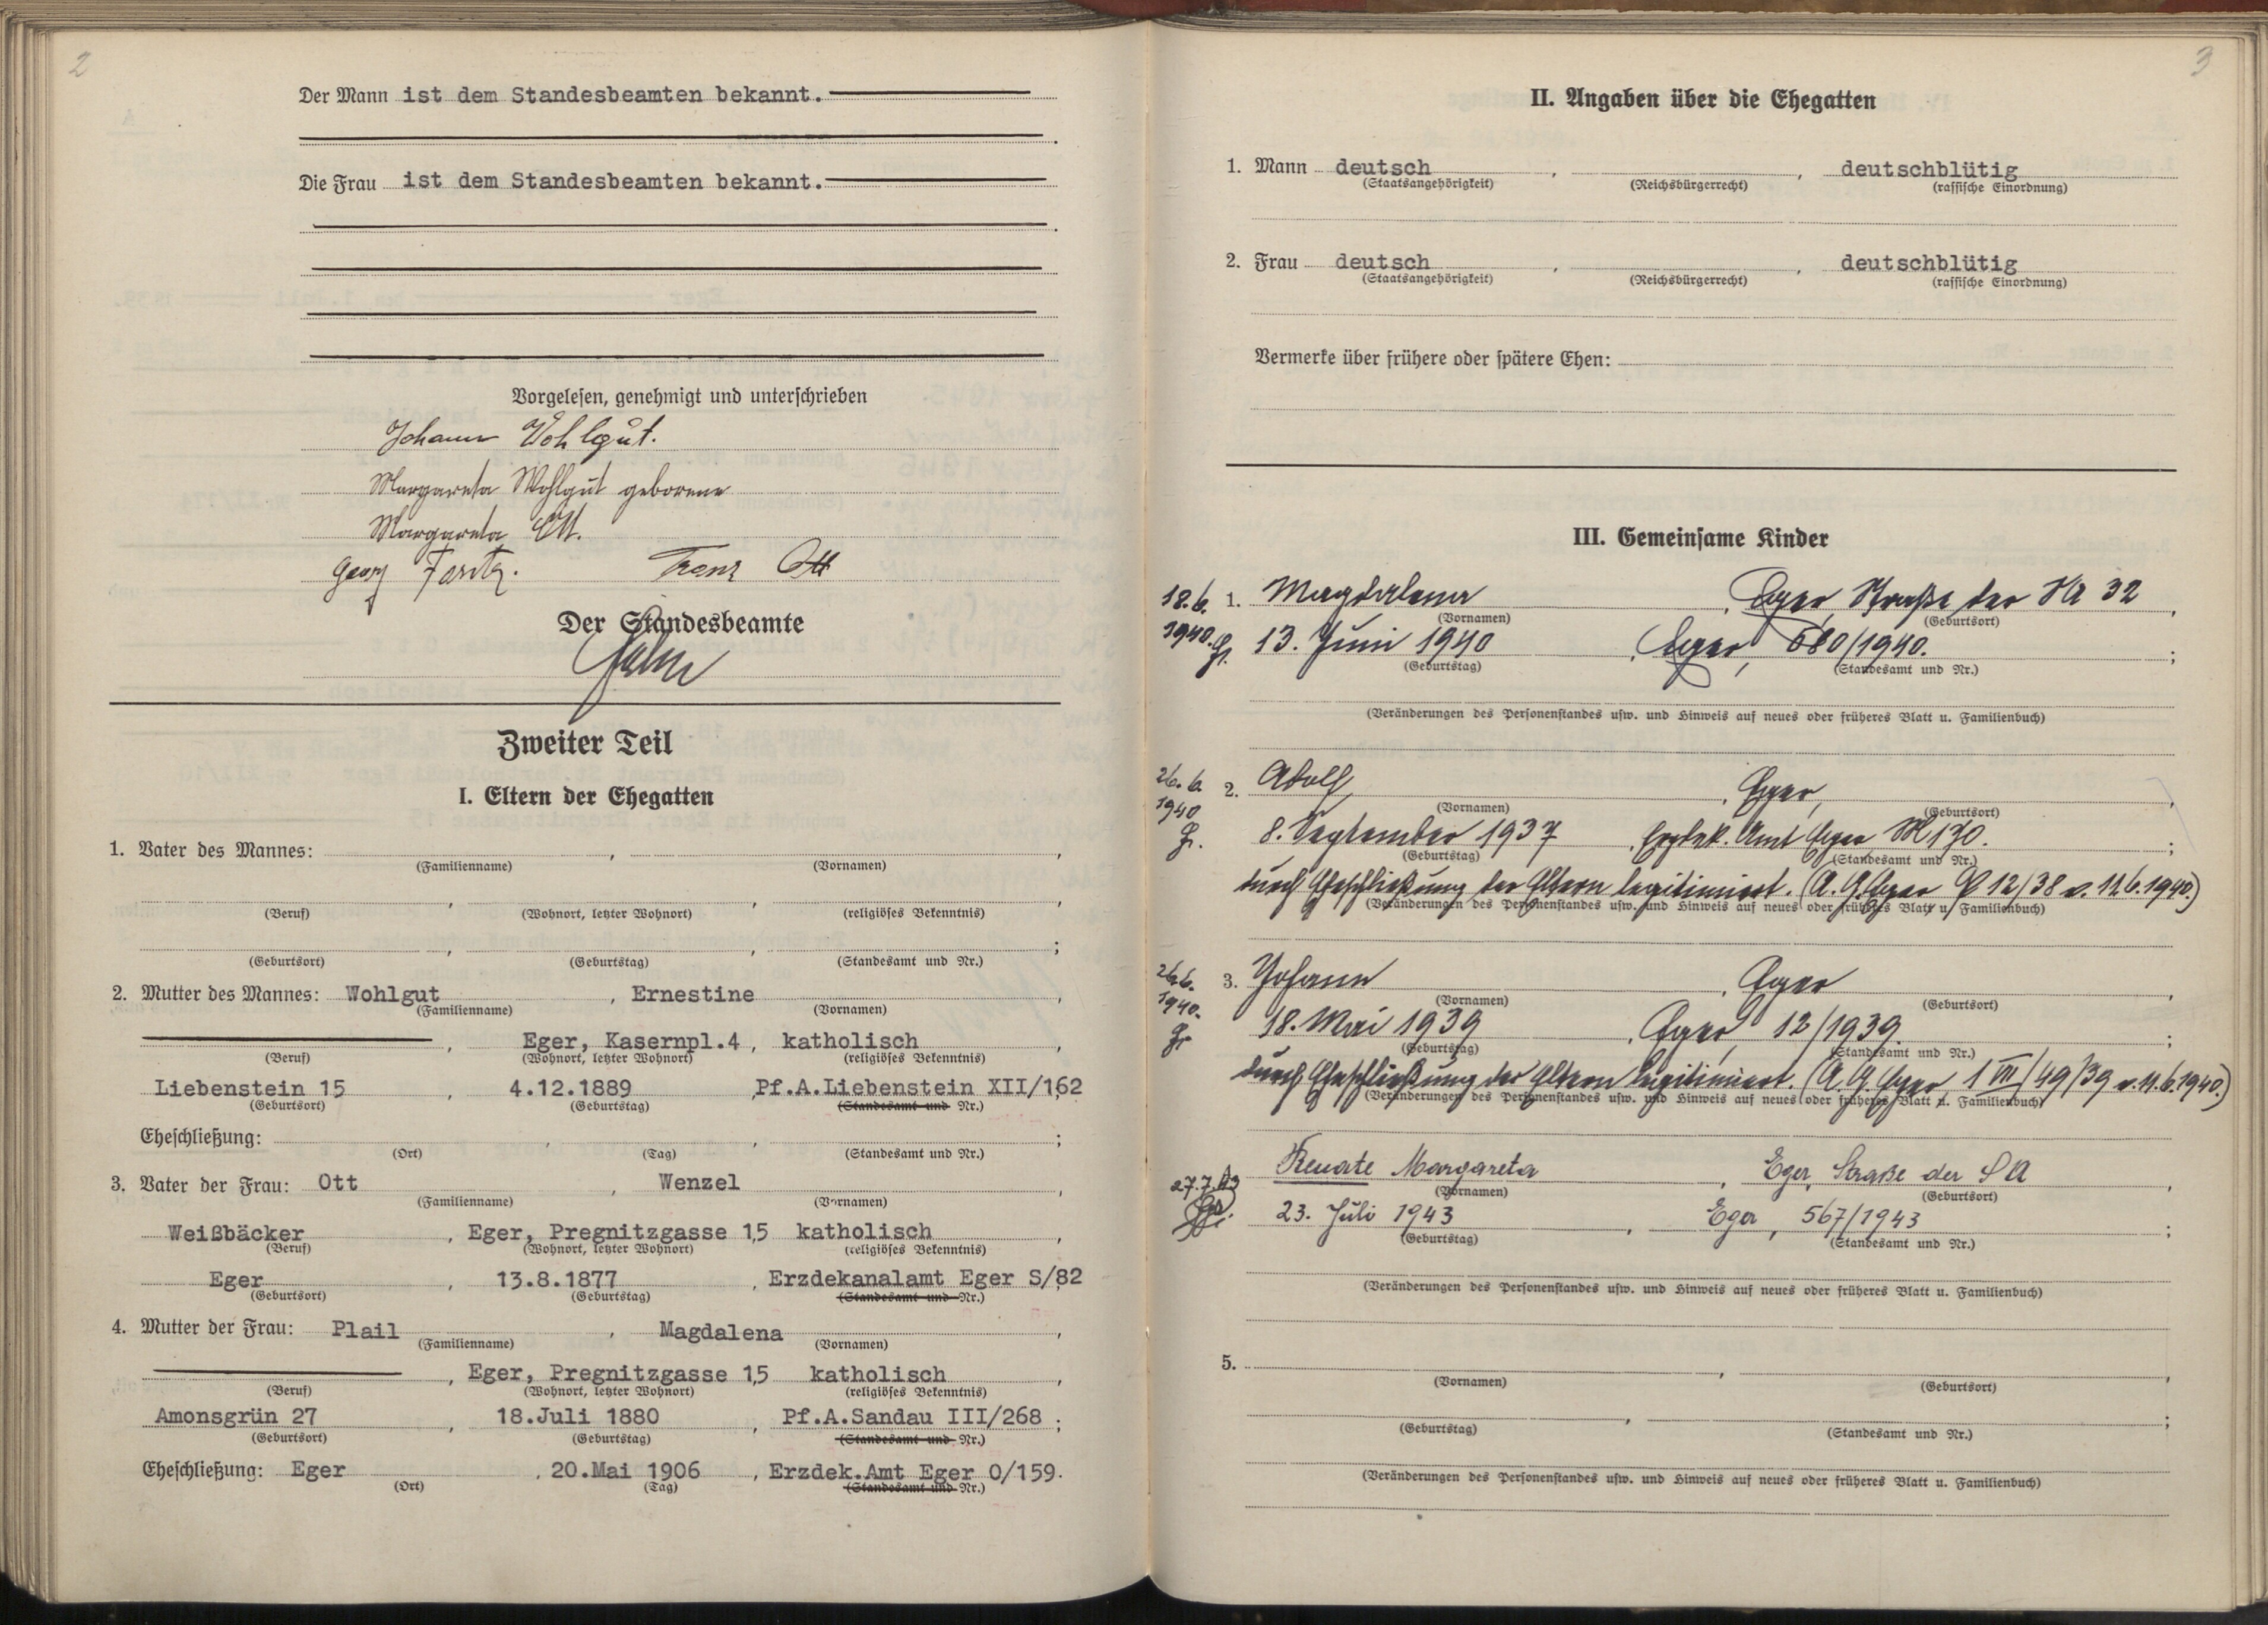 2
Der Mann ist dem Standesbeamten bekannt.
Die Frau ist dem Standesbeamten bekannt.
Vorgelesen, genehmigt und unterschrieben
Johann Wohlgut.
Margareta Wohlgut geborene
Margareta Ott.
Georg Franz Ott
Der Standesbeamte
Zweiter Teil
I. Eltern der Ehegatten
1. Vater des Mannes: , ,
(Familienname) (Vornamen)
(Beruf) (Wohnort, letzter Wohnort) (religiöses Bekenntnis)
(Geburtsort) (Geburtstag) (Standesamt und Nr.)
2. Mutter des Mannes: Wohlgut , Ernestine ,
(Familienname) (Vornamen)
, Eger, Kasernpl.4 , katholisch ,
(Beruf) (Wohnort, letzter Wohnort) (religiöses Bekenntnis)
Liebenstein 15 , 4.12.1889 , Pf.A.Liebenstein XII/162
(Geburtsort) (Geburtstag) (Standesamt und Nr.)
Eheschließung: , , ;
(Ort) (Tag) (Standesamt und Nr.)
3. Vater der Frau: Ott , Wenzel ,
(Familienname) (Vornamen)
Weißbäcker , Eger, Pregnitzgasse 15, katholisch ,
(Beruf) (Wohnort, letzter Wohnort) (religiöses Bekenntnis)
Eger , 13.8.1877 , Erzdekanalamt Eger S/82
(Geburtsort) (Geburtstag) (Standesamt und Nr.)
4. Mutter der Frau: Plail , Magdalena ,
(Familienname) (Vornamen)
, Eger, Pregnitzgasse 15, katholisch ,
(Beruf) (Wohnort, letzter Wohnort) (religiöses Bekenntnis)
Amonsgrün 27 , 18.Juli 1880 , Pf.A.Sandau III/268 ;
(Geburtsort) (Geburtstag) (Standesamt und Nr.)
Eheschließung: Eger , 20.Mai 1906 , Erzdek.Amt Eger O/159.
(Ort) (Tag) (Standesamt und Nr.)
3
II. Angaben über die Ehegatten
1. Mann deutsch , , deutschblütig
(Staatsangehörigkeit) (Reichsbürgerrecht) (rassische Einordnung)
2. Frau deutsch , , deutschblütig
(Staatsangehörigkeit) (Reichsbürgerrecht) (rassische Einordnung)
Vermerke über frühere oder spätere Ehen:
III. Gemeinsame Kinder
18.6. 1. Magdalena , Eger, Straße der SA 32 ,
(Vornamen) (Geburtsort)
1940. 13. Juni 1940 , Eger, 580/1940. ;
(Geburtstag) (Standesamt und Nr.)
(Veränderungen des Personenstandes usw. und Hinweis auf neues oder früheres Blatt u. Familienbuch)
26.6. 2. Adolf , Eger, ,
1940 (Vornamen) (Geburtsort)
8. September 1937 , Erzdek. Amt Eger M 170. ;
(Geburtstag) (Standesamt und Nr.)
durch Eheschließung der Eltern legitimiert. (A. G. Eger P 12/38 v. 11.6.1940.)
(Veränderungen des Personenstandes usw. und Hinweis auf neues oder früheres Blatt u. Familienbuch)
26.6. 3. Johann , Eger ,
1940. (Vornamen) (Geburtsort)
18. Mai 1939 , Eger 12/1939. ;
(Geburtstag) (Standesamt und Nr.)
durch Eheschließung der Eltern legitimiert. (A. G. Eger, 1 VII/49/39 v. 11.6.1940.)
(Veränderungen des Personenstandes usw. und Hinweis auf neues oder früheres Blatt u. Familienbuch)
Renate Margareta , Eger, Straße der SA ,
27.7.43 (Vornamen) (Geburtsort)
23. Juli 1943 , Eger, 567/1943 ;
(Geburtstag) (Standesamt und Nr.)
(Veränderungen des Personenstandes usw. und Hinweis auf neues oder früheres Blatt u. Familienbuch)
5. , ,
(Vornamen) (Geburtsort)
(Geburtstag) (Standesamt und Nr.)
(Veränderungen des Personenstandes usw. und Hinweis auf neues oder früheres Blatt u. Familienbuch)